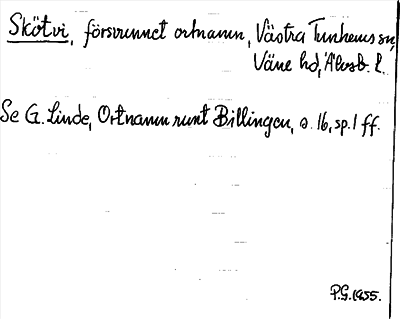 Skötvi, försvunnet ortnamn, Västra Tunhems sn,
Väne hd, Älvsb. l.
Se G. Linde, Ortnamn runt Billingen, s. 16, sp. 1 ff.
P.G. 1955.